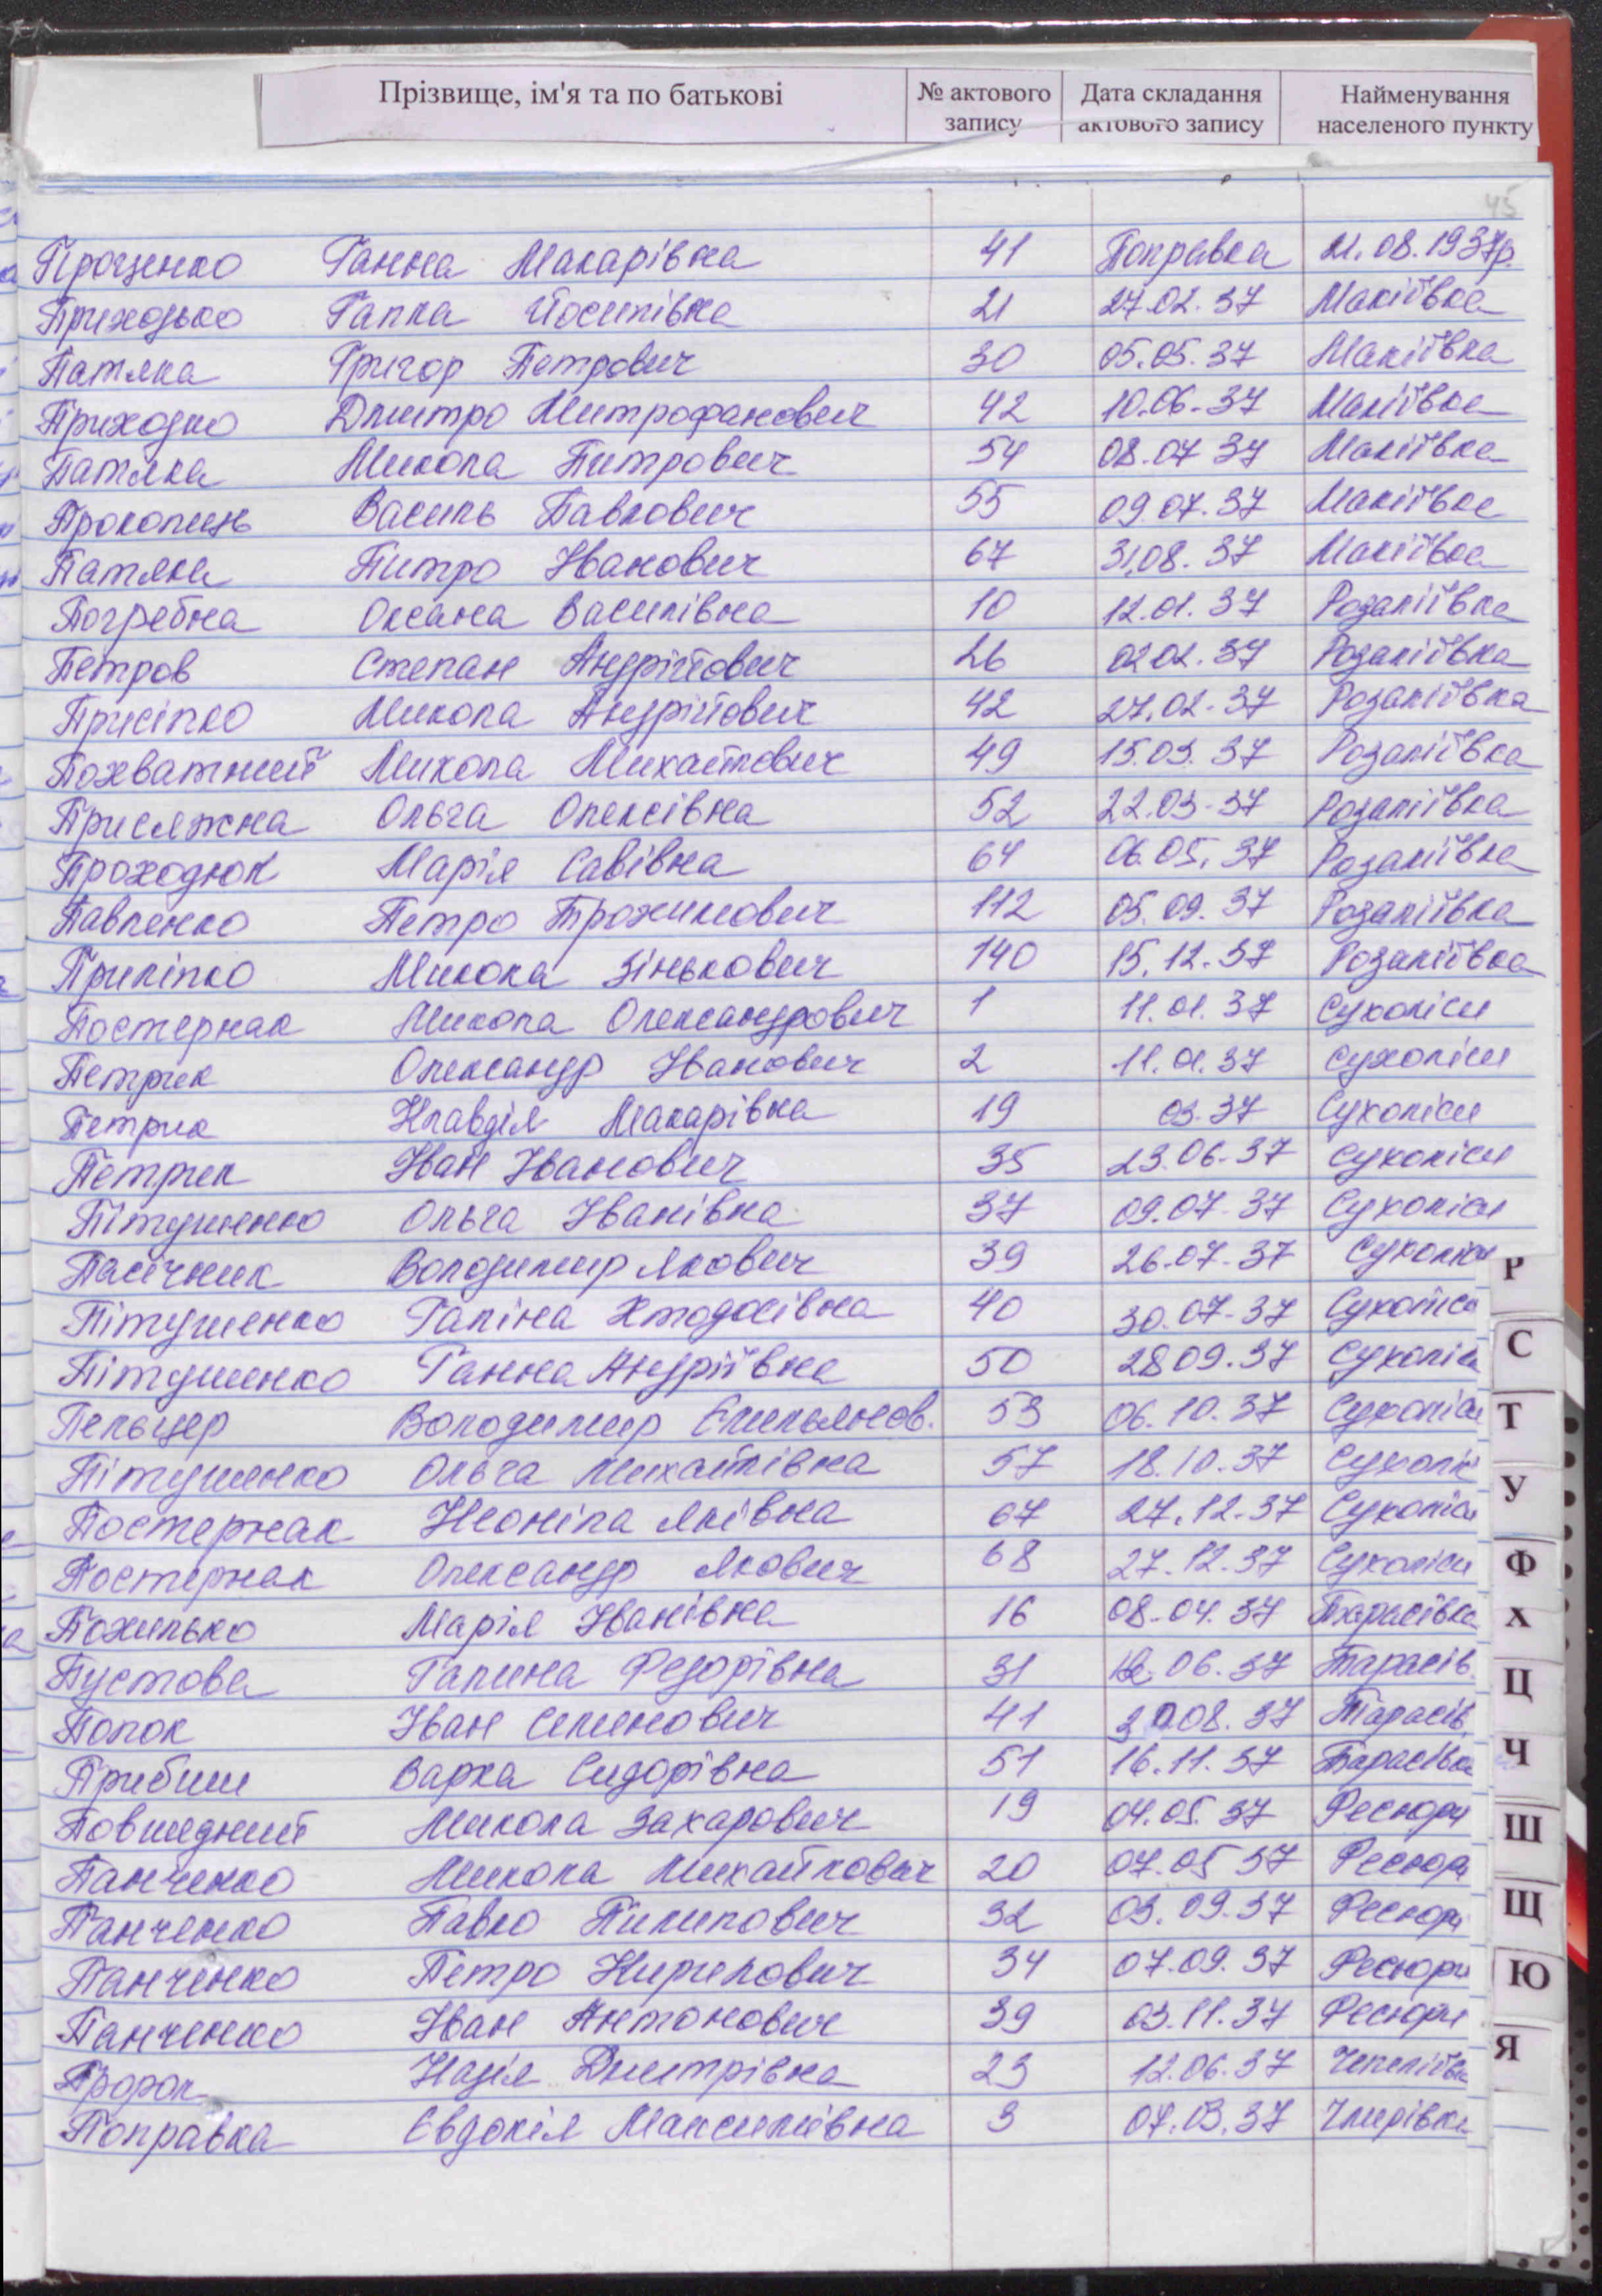 Прізвище, ім'я та по батькові № актового запису Дата складання актового запису Найменування населеного пункту
45
Проценко Ганна Макарівна 41 Поправка 21.08.1937р.
Приходько Гапка Йосипівна 21 27.02.37 Макіївка
Патяка Григор Петрович 30 05.05.37 Макіївка
Приходко Дмитро Митрофанович 42 10.06.37 Макіївка
Патяка Микола Питрович 54 08.07 37 Макіївка
Прокопець Василь Павлович 55 09.07.37 Макіївка
Патяка Питро Іванович 67 31.08.37 Макіївка
Погребна Оксана Василівна 10 12.01.37 Розаліївка
Петров Степан Андрійович 26 02.02.37 Розаліївка
Присіпко Микола Андрійович 42 27.02.37 Розаліївка
Похватний Микола Михайлович 49 15.03.37 Розаліївка
Присяжна Ольга Олексівна 52 22.03.37 Розаліївка
Проходюк Марія Савівна 64 06.05.37 Розаліївка
Павленко Петро Трохимович 112 05.09.37 Розаліївка
Приліпко Микола Зінькович 140 15.12.37 Розаліївка
Постернак Микола Олександрович 1 11.01.37 Сухоліси
Петрик Олександр Іванович 2 11.01.37 Сухоліси
Петрик Клавдія Макарівна 19 03.37 Сухоліси
Петрик Іван Іванович 35 23.06.37 Сухоліси
Пітушенко Ольга Іванівна 37 09.07.37 Сухоліси
Пасічник Володимир Якович 39 26.07.37 Сухоліси
Пітушенко Галіна Хтодосівна 40 30.07.37 Сухоліси
Пітушенко Ганна Андріївна 50 28 09.37 Сухоліси
Пельцер Володимир Емильянов. 53 06.10.37 Сухоліси
Пітушенко Ольга Михайлівна 57 18.10.37 Сухолі
Постернак Неоніла Яківна 67 27.12.37 Сухоліси
Постернак Олександр Якович 68 27.12.37 Сухоліси
Похилько Марія Іванівна 16 08.04.37 Тарасівка
Пустова Галина Федорівна 31 06.37 Тарасів.
Попок Іван Семенович 41 30.08.37 Тарасів.
Прибиш Варка Сидорівна 51 16.11.37 Тарасівка
Повшедний Микола Захарович 19 04.05.37 Фесюри
Панченко Микола Михайлович 20 07.05 37 Фесюри
Панченко Павло Пилипович 32 03.09.37 Фесюри
Панченко Петро Кирилович 34 07.09.37 Фесюри
Панченко Іван Антонович 39 03.11.37 Фесюри
Пророк Надія Дмитрівна 23 12.06.37 Чепеліївка
Поправка Євдокія Максимівна 3 07.03.37 Чмирівка
Р
С
Т
У
Ф
Х
Ц
Ч
Ш
Щ
Ю
Я